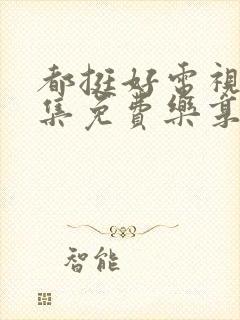 都挺好電視
集免費樂章
智能